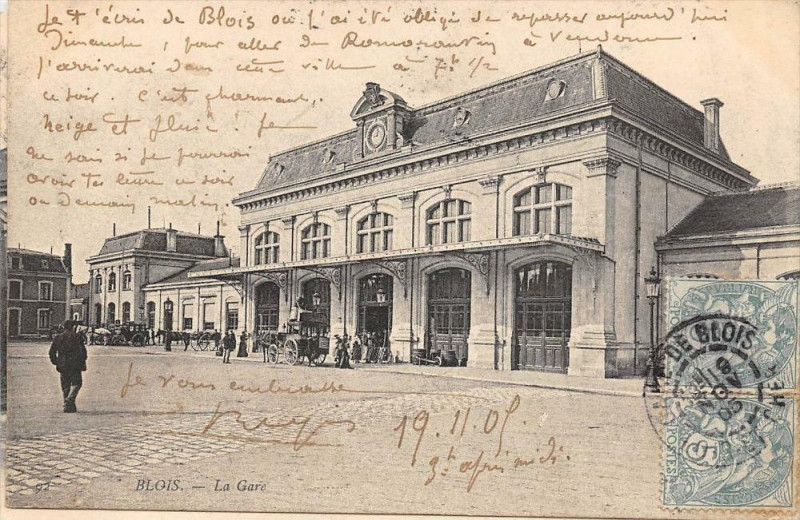 Je t'écris de Blois où j'ai été obligé de repasser aujourd'hui
Dimanche, pour aller de Romorantin à Vendôme.
j'arriverai dans cette ville à 7h 1/2
ce soir. C'est charmant,
neige et pluie! Je
ne sais si je pourrai
avoir tes lettres ce soir
ou demain matin
Je vous embrasse
19.11.05
3h après midi.
92 BLOIS. - La Gare
GARE DE BLOIS
19 NOV 05
POSTES
5